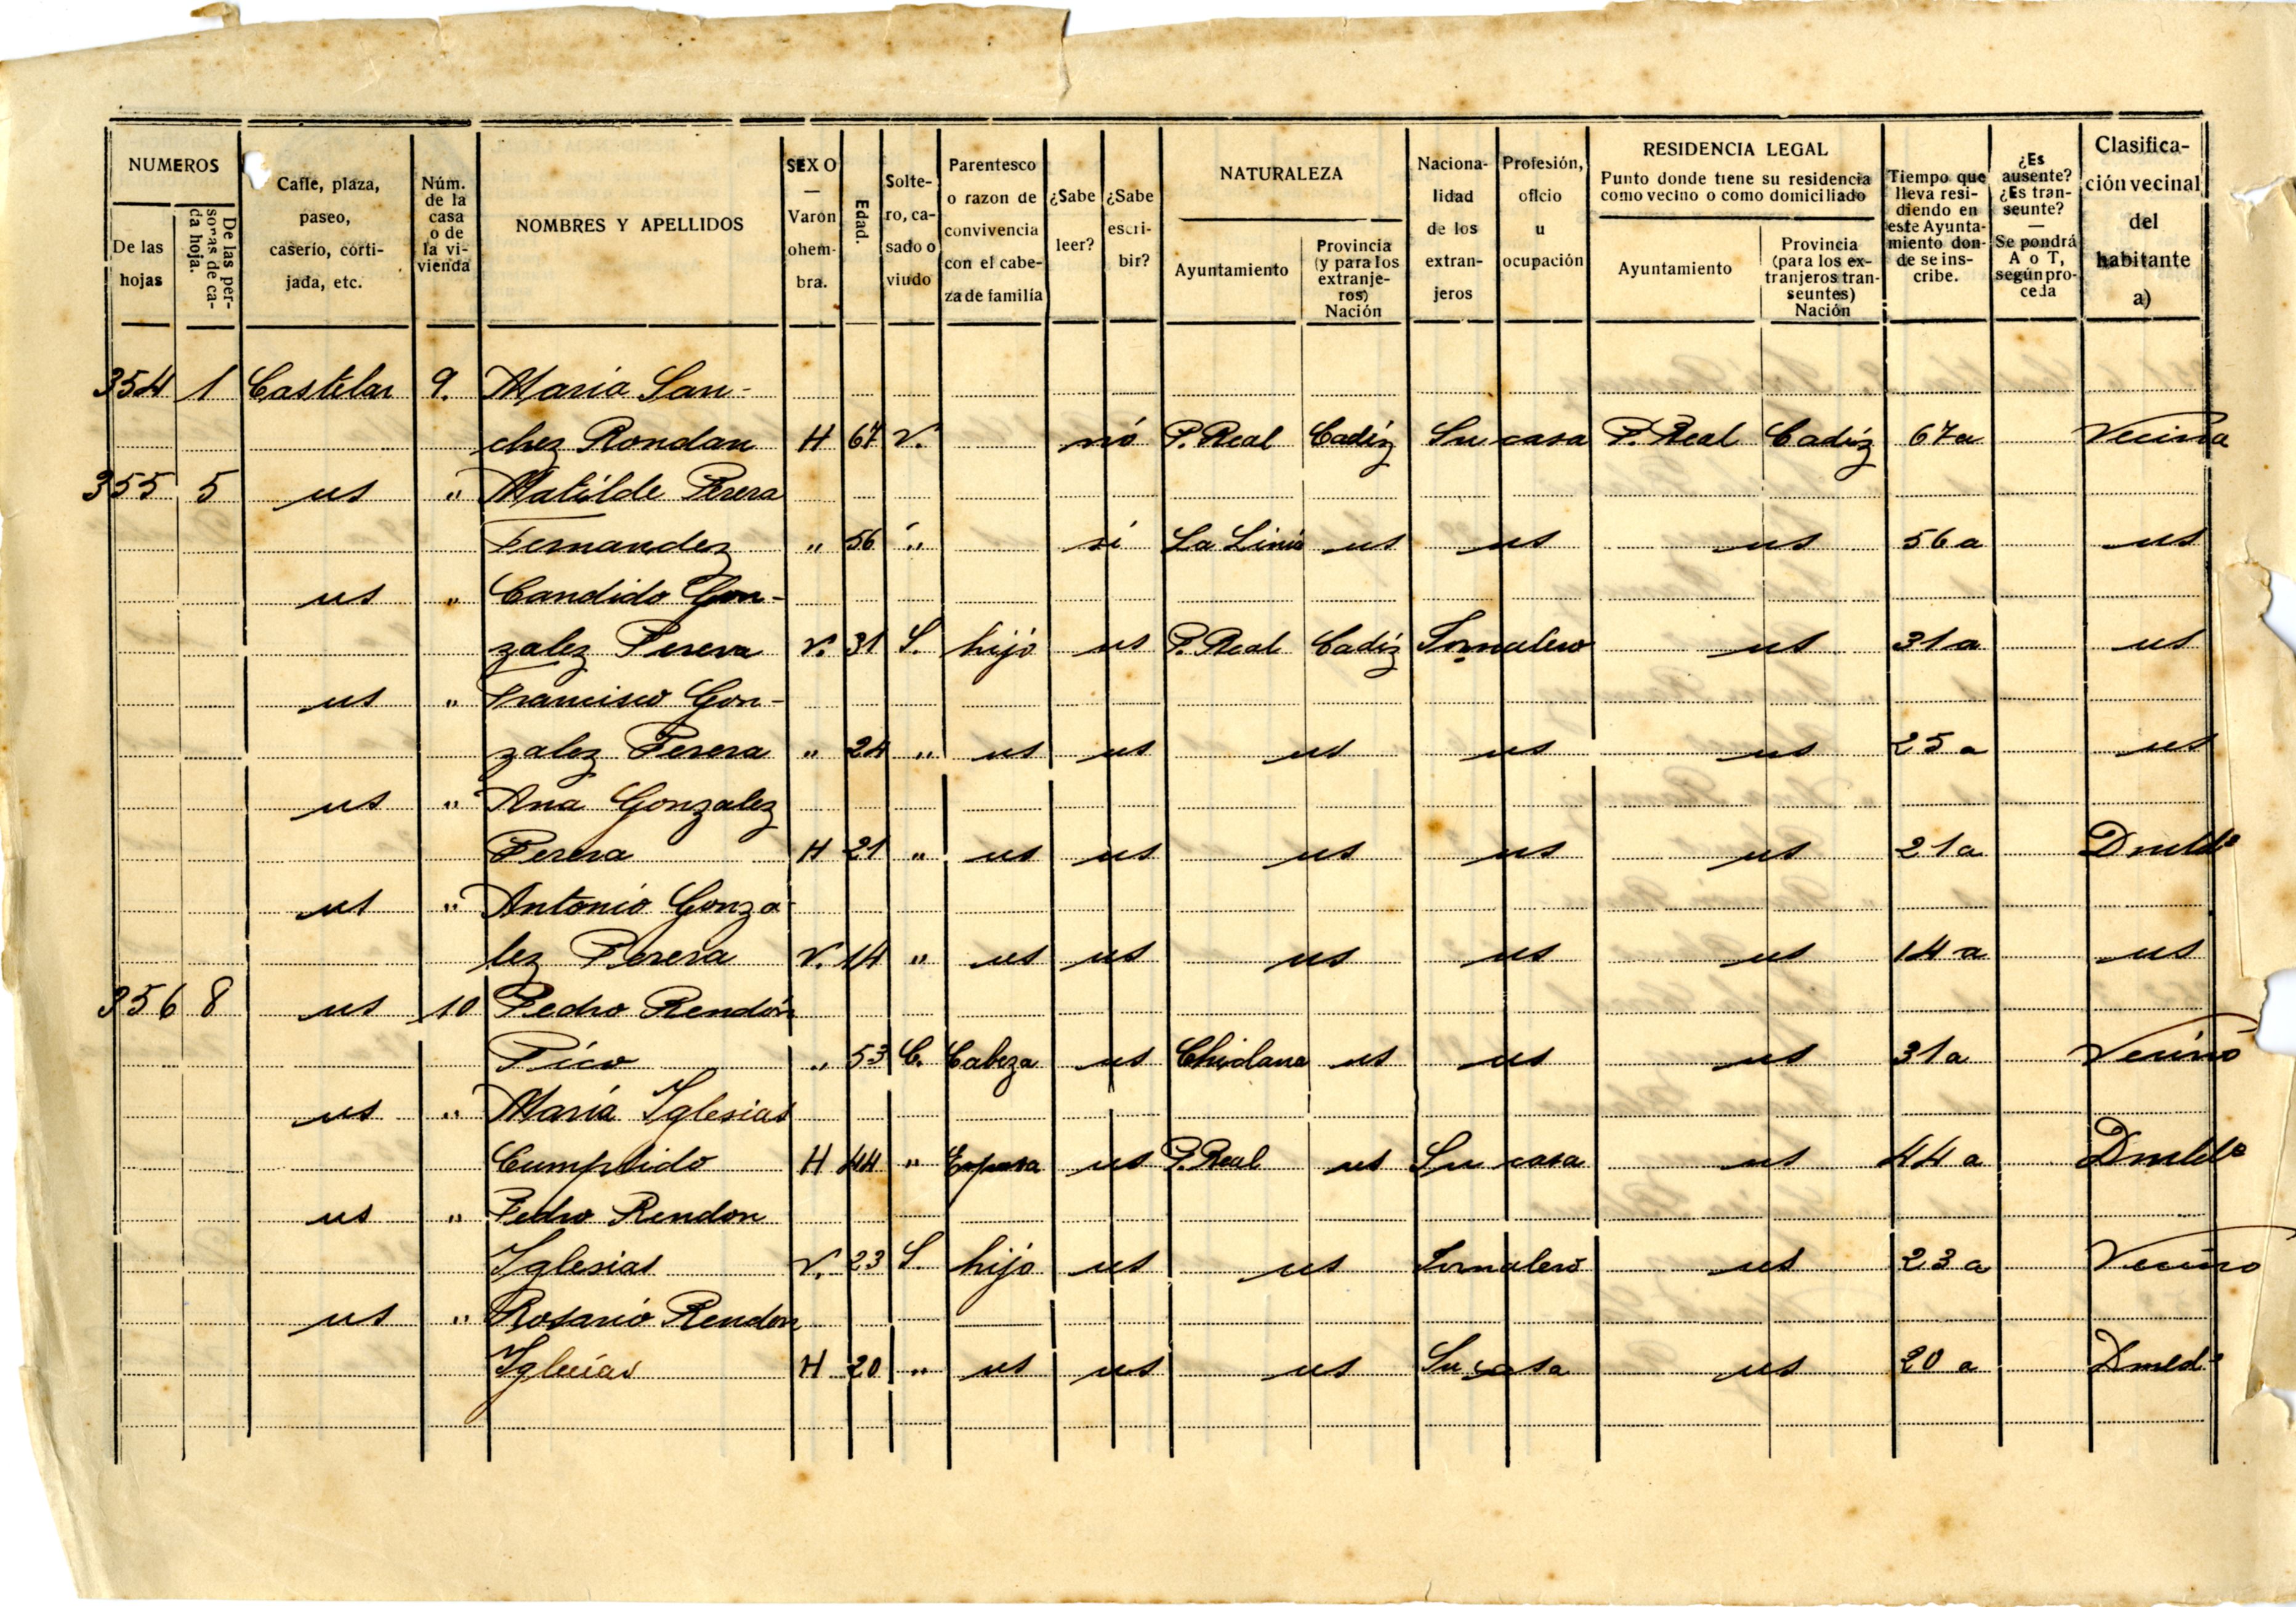 NUMEROS
De las hojas
De las personas de cada hoja.
Calle, plaza, paseo, caserío, córtijada, etc.
Núm. de la casa o de la vivienda
NOMBRES Y APELLIDOS
SEXO — Varón ohembra.
Edad.
Soltero, casado o viudo
Parentesco o razon de convivencia con el cabeza de familia
¿Sabe leer?
¿Sabe escribir?
NATURALEZA
Ayuntamiento
Provincia (y para los extranjeros) Nación
Nacionalidad de los extranjeros
Profesión, oficio u ocupación
RESIDENCIA LEGAL
Punto donde tiene su residencia como vecino o como domiciliado
Ayuntamiento
Provincia (para los extranjeros transeuntes) Nación
Tiempo que lleva residiendo en este Ayuntamiento donde se inscribe.
¿Es ausente? ¿Es transeunte? — Se pondrá A o T, según proceda
Clasificación vecinal del habitante a)
354 1 Castelar 9. Maria San-
chez Rondan H 67 V. nó P. Real Cadiz Su casa P. Real Cadiz 67a Vecina
355 5 us " Matilde Perera
Fernandez " 56 " si La Linia us us us 56a us
us " Candido Gon-
zalez Perera V. 31 S. hijo us P. Real Cadiz Jornalero us 31a us
us " Francisco Gon-
zalez Perera " 24 " us us us us us 25a us
us " Ana Gonzalez
Perera H 21 " us us us us us 21a Dmldº
us " Antonio Gonza
lez Perera V. 14 " us us us us us 14a us
356 8 us 10 Pedro Rendón
Pico " 53 C. Cabeza us Chiclana us us us 31a Vecino
us " María Iglesias
Cumplido H 44 " Esposa us P. Real us Su casa us 44a Dmldº
us " Pedro Rendon
Iglesias V. 23 S. hijo us us Jornalero us 23a Vecino
us " Rosario Rendon
Iglesias H 20 " us us us Su casa us 20a Dmldº